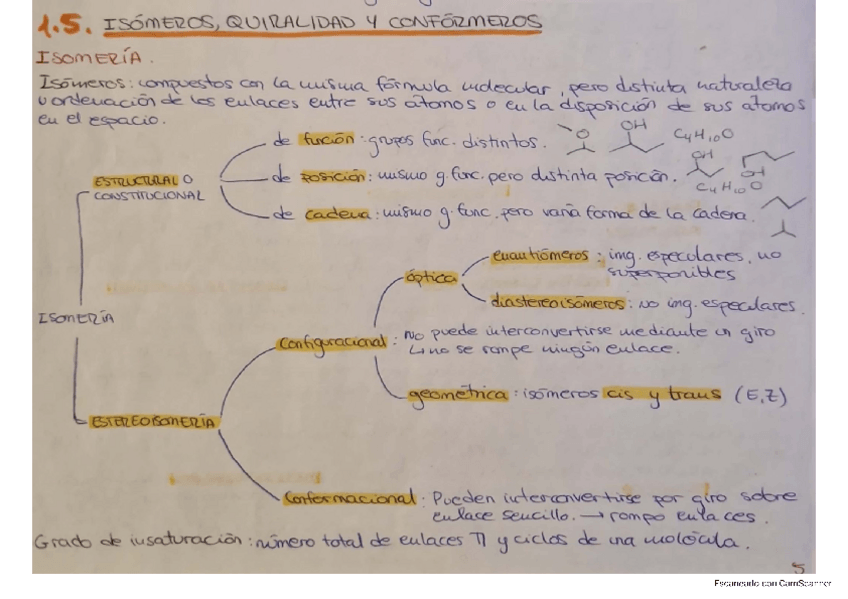 1.5. ISÓMEROS, QUIRALIDAD Y CONFÓRMEROS
ISOMERÍA.
Isómeros: compuestos con la misma fórmula molecular, pero distinta naturaleza
u ordenación de los enlaces entre sus átomos o en la disposición de sus átomos
en el espacio.
de función: grupos func. distintos. OH C4H10O
ESTRUCTURAL O
CONSTITUCIONAL
de posición: mismo g. func. pero distinta posición. OH OH C4H10O
de cadena: mismo g. func. pero varía forma de la cadena.
Isomería
óptica
enantiómeros: img. especulares, no
superponibles
diastereoisómeros: no img. especulares.
Configuracional: No puede interconvertirse mediante un giro
↳ no se rompe ningún enlace.
geométrica: isómeros cis y trans (E,Z)
ESTEREOISOMERÍA
Conformacional: Pueden interconvertirse por giro sobre
enlace sencillo. → rompo enlaces.
Grado de insaturación: número total de enlaces π y ciclos de una molécula.
5
Escaneado con CamScanner